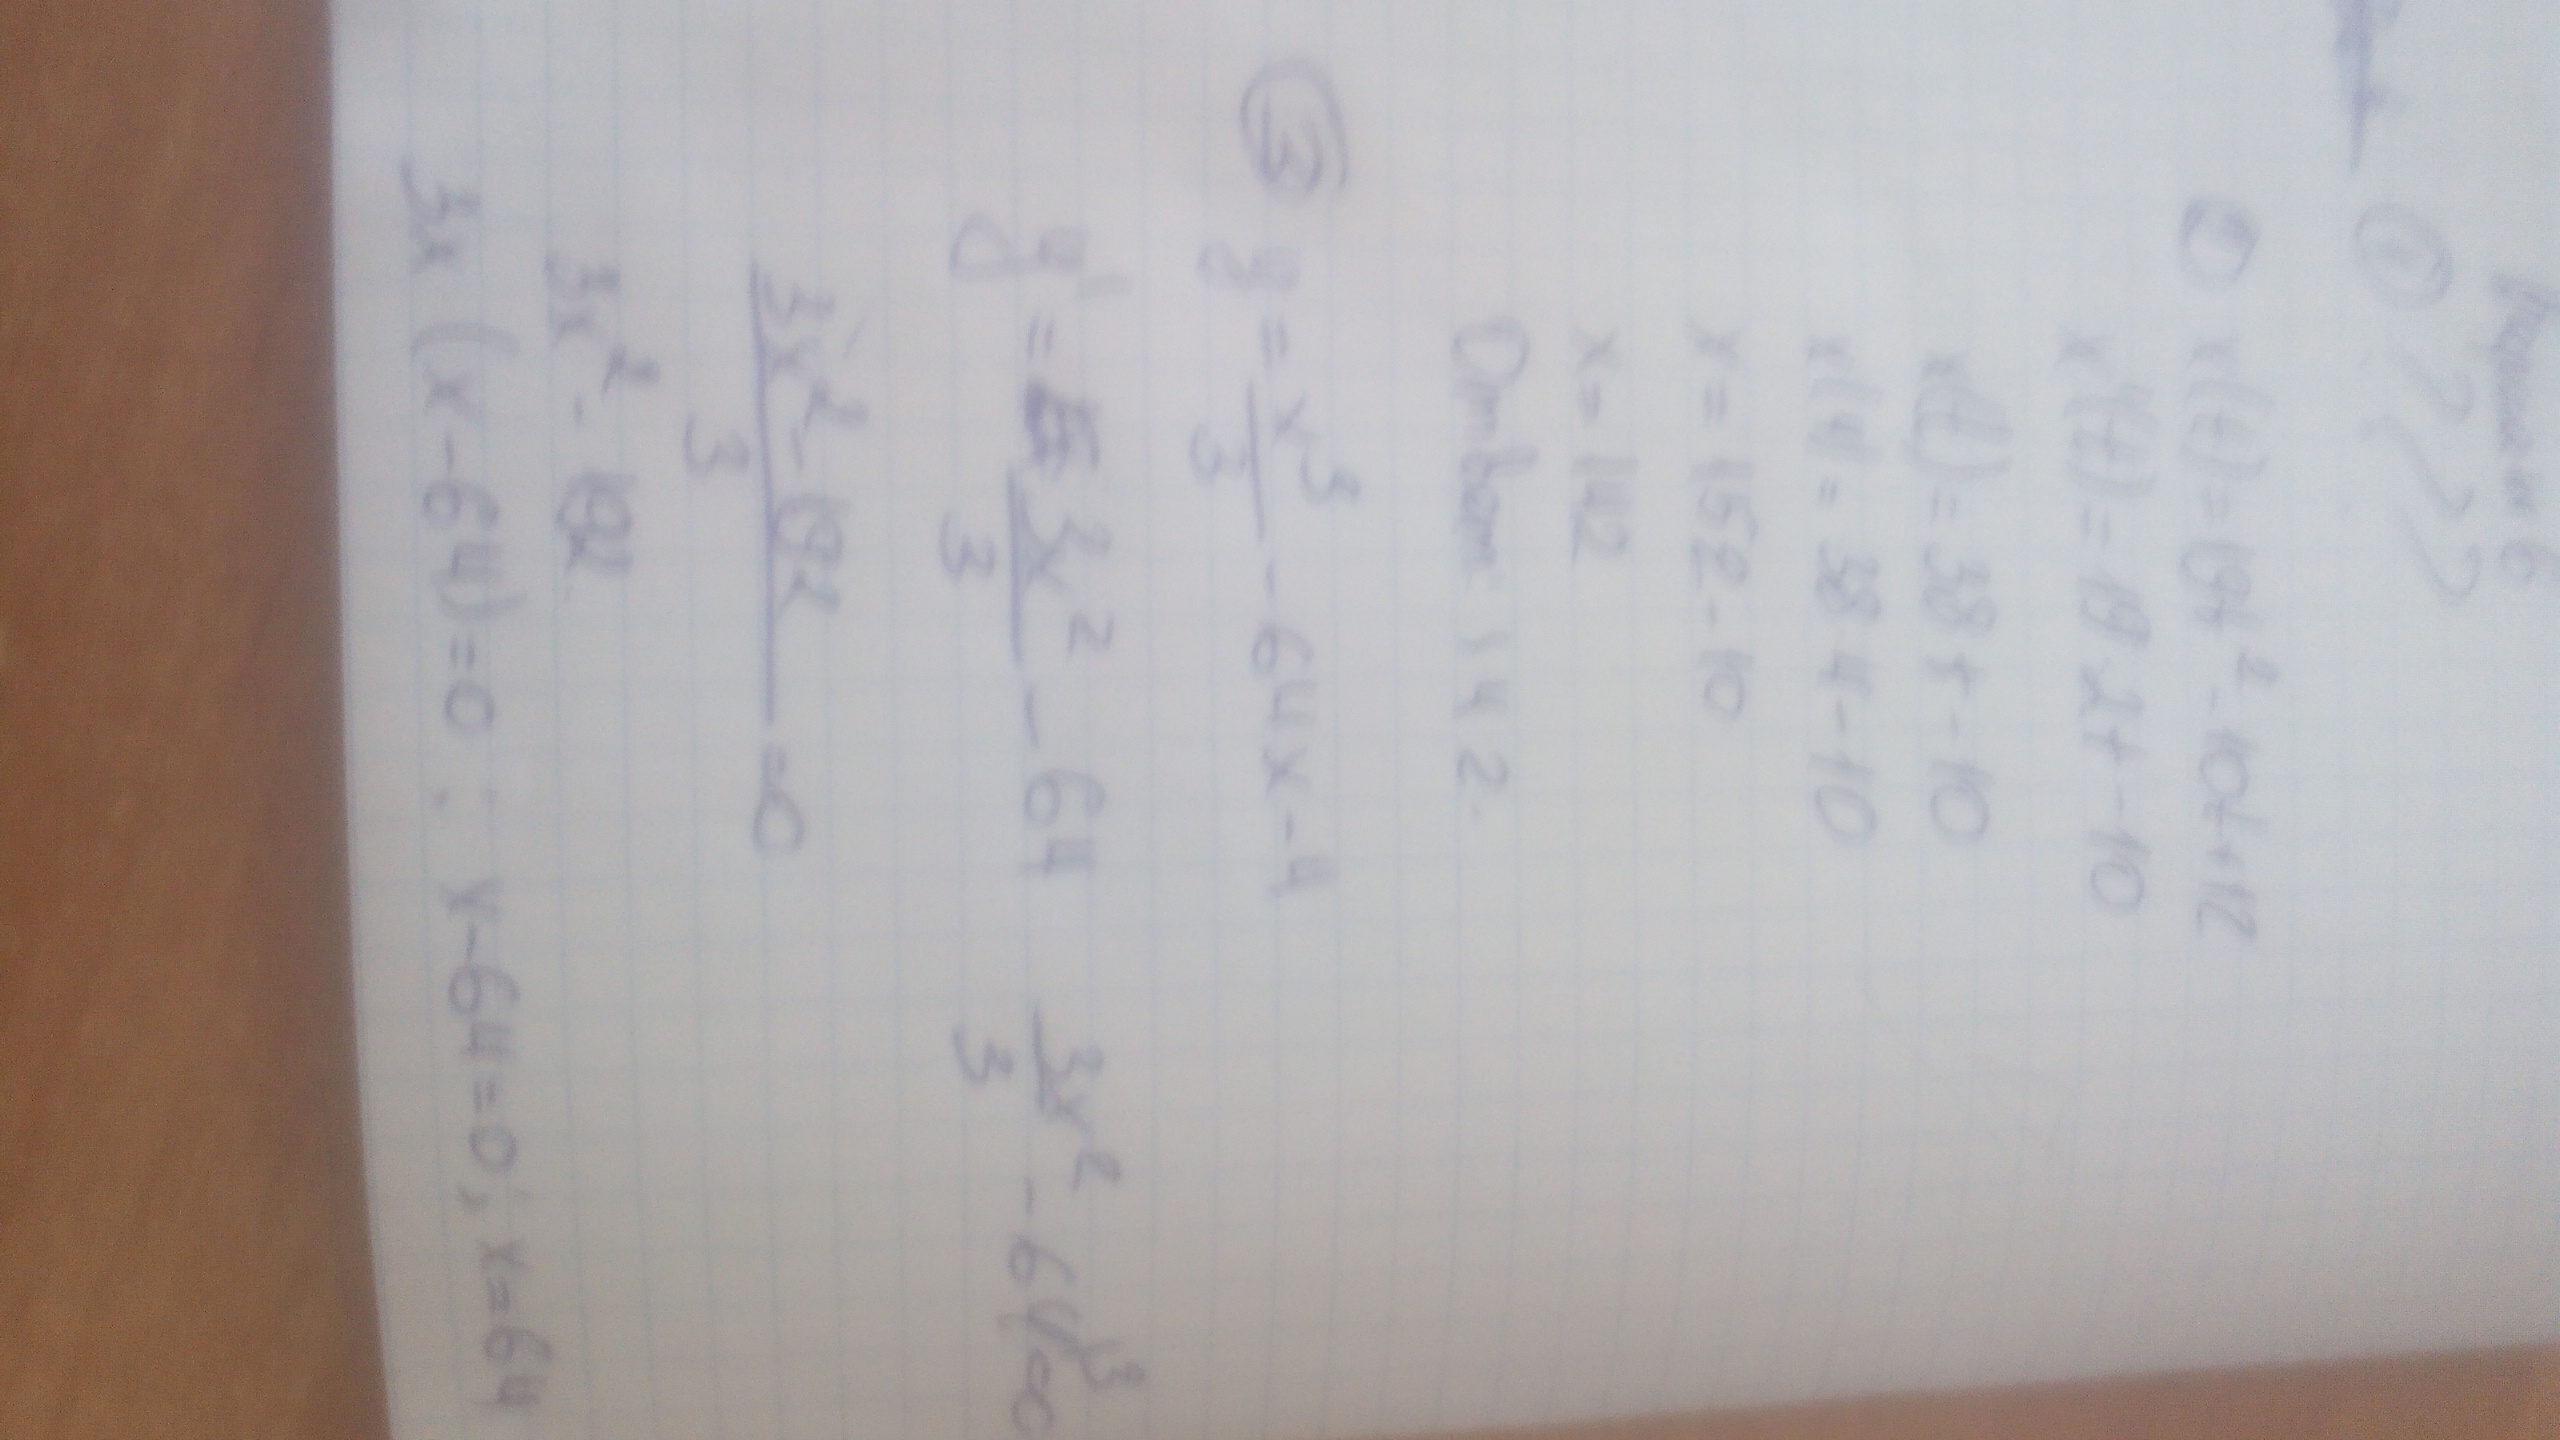 ① x(t)=19t²-10t+12
x'(t)=19·2t-10
x'(t)=38t-10
x'(4)=38·4-10
x=152-10
x=142
Ответ 142.
③ y=x³/3-64x-4
y'=3x²/3-64 3x²/3-64=0
3x²-192/3=0
3x²-192
3x(x-64)=0; x-64=0; x=64